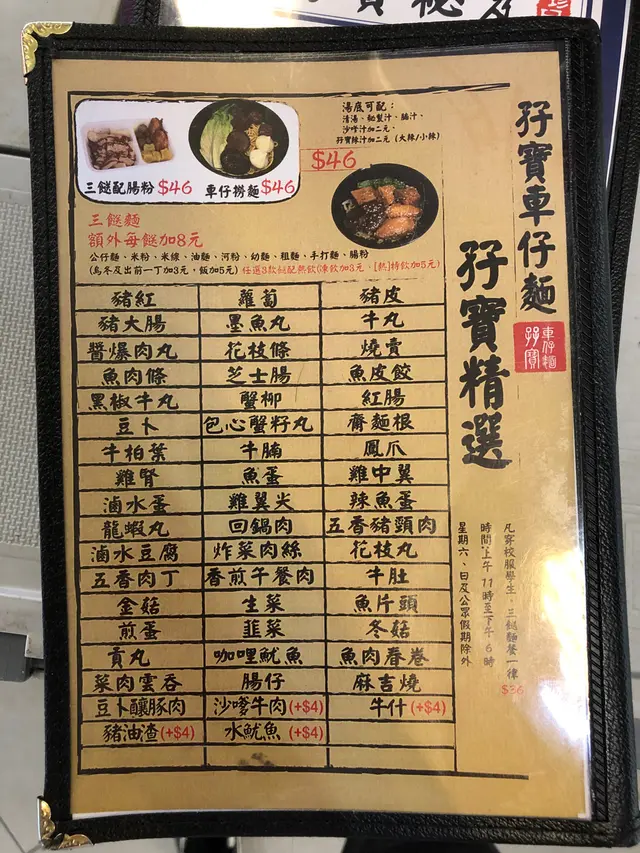 孖寶車仔麵
車仔麵
孖寶
孖寶精選
湯底可配：
清湯、秘製汁、腩汁、
沙嗲汁加二元、
孖寶辣汁加二元（大辣/小辣）
$46
三餸配腸粉 $46
車仔撈麵 $46
三餸麵
額外每餸加8元
公仔麵、米粉、米線、油麵、河粉、幼麵、粗麵、手打麵、腸粉
(烏冬及出前一丁加3元，飯加5元) 任選3款餸配熱飲(凍飲加3元、[熱]特飲加5元)
豬紅 蘿蔔 豬皮
豬大腸 墨魚丸 牛丸
醬爆肉丸 花枝條 燒賣
魚肉條 芝士腸 魚皮餃
黑椒牛丸 蟹柳 紅腸
豆卜 包心蟹籽丸 齋麵根
牛柏葉 牛腩 鳳爪
雞腎 魚蛋 雞中翼
滷水蛋 雞翼尖 辣魚蛋
龍蝦丸 回鍋肉 五香豬頸肉
滷水豆腐 炸菜肉絲 花枝丸
五香肉丁 香煎午餐肉 牛肚
金菇 生菜 魚片頭
煎蛋 韮菜 冬菇
貢丸 咖哩魷魚 魚肉春卷
菜肉雲吞 腸仔 麻吉燒
豆卜釀豚肉 沙嗲牛肉(+$4) 牛什(+$4)
豬油渣(+$4) 水魷魚(+$4)
凡穿校服學生、三餸麵餐一律
$36
時間:上午11時至下午6時
星期六、日及公眾假期除外